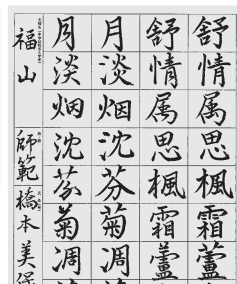 舒情属思楓霜蘆
舒情属思楓霜蘆
月淡烟沈芬菊凋
月淡烟沈芬菊凋
福山 師範 橋本美保